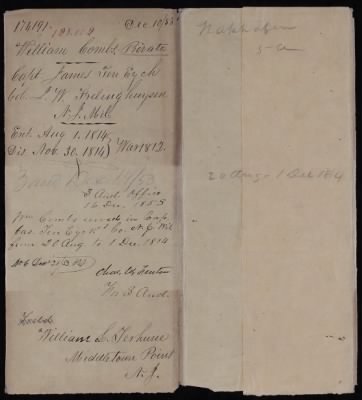 174191-
Dec 10/53
William Combs, Private
Capt James Ten Eyck
Col. F. W. Frelinghuysen
N. J. Mil.
Ent. Aug 1. 1814
Dis Nov. 30. 1814) War 1812.
3 Aud. Office
16 Dec. 1853
Wm Combs served in Cap.
Jas. Ten Eyck's Co. N. J. Mil
from 20 Aug to 1 Dec. 1814
for 3 Aud.
William L. Terhune
Middletown Point
N. J.
20 Aug - 1 Dec 1814